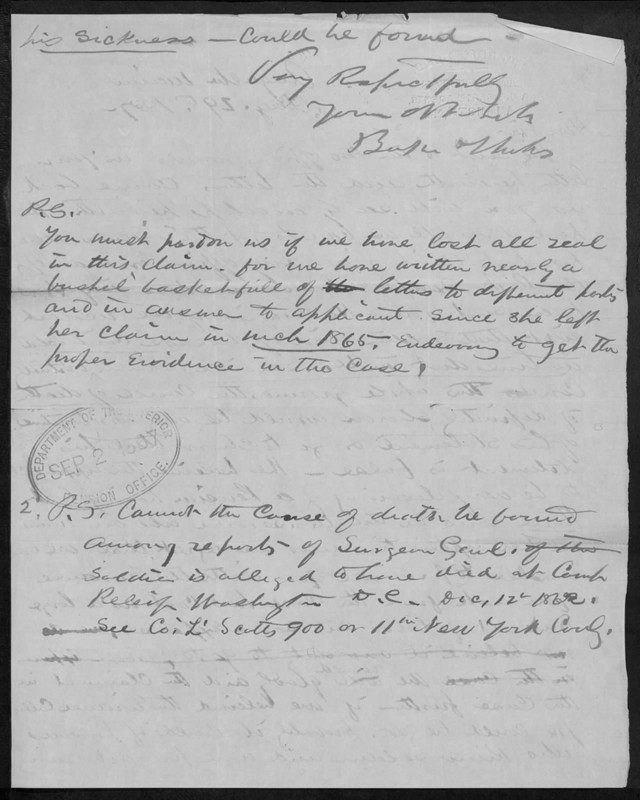 his sickness — Could be found —
Very Respectfully
Your
Baker & Weeks
P.S.
You must pardon us if we have lost all zeal
in this claim. for we have written nearly a
bushel basketfull of the letters to different parts
and in answer to applicant since she left
her claim in Mch 1865. Endeavoring to get the
proper Evidence in the Case,
DEPARTMENT OF THE INTERIOR
SEP 2
PENSION OFFICE.
2. P.S. Cannot the Cause of death be found
among reports of Surgeon Genl. of this
Soldier is alleged to have died at Camp
Relief Washington D.C. Dec, 12th 1862.
See Co. "L" Scotts 900 or 11th New York Cavly.